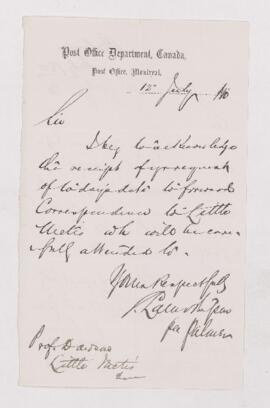 Post Office Department, Canada,
Post Office, Montreal,
12 July
Sir
I beg to acknowledge
the receipt of yr request
of to days date to forward
Correspondence to Little
Metis wh will be care
fully attended to.
Yours Respectfully
per
Prof Dawson
Little Metis